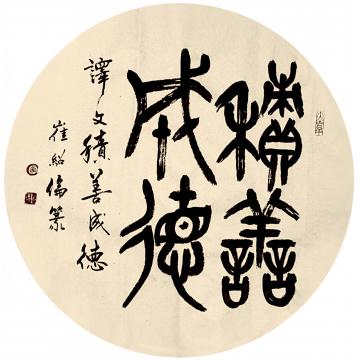 積善
成德
譯文積善成德
崔紹倫篆